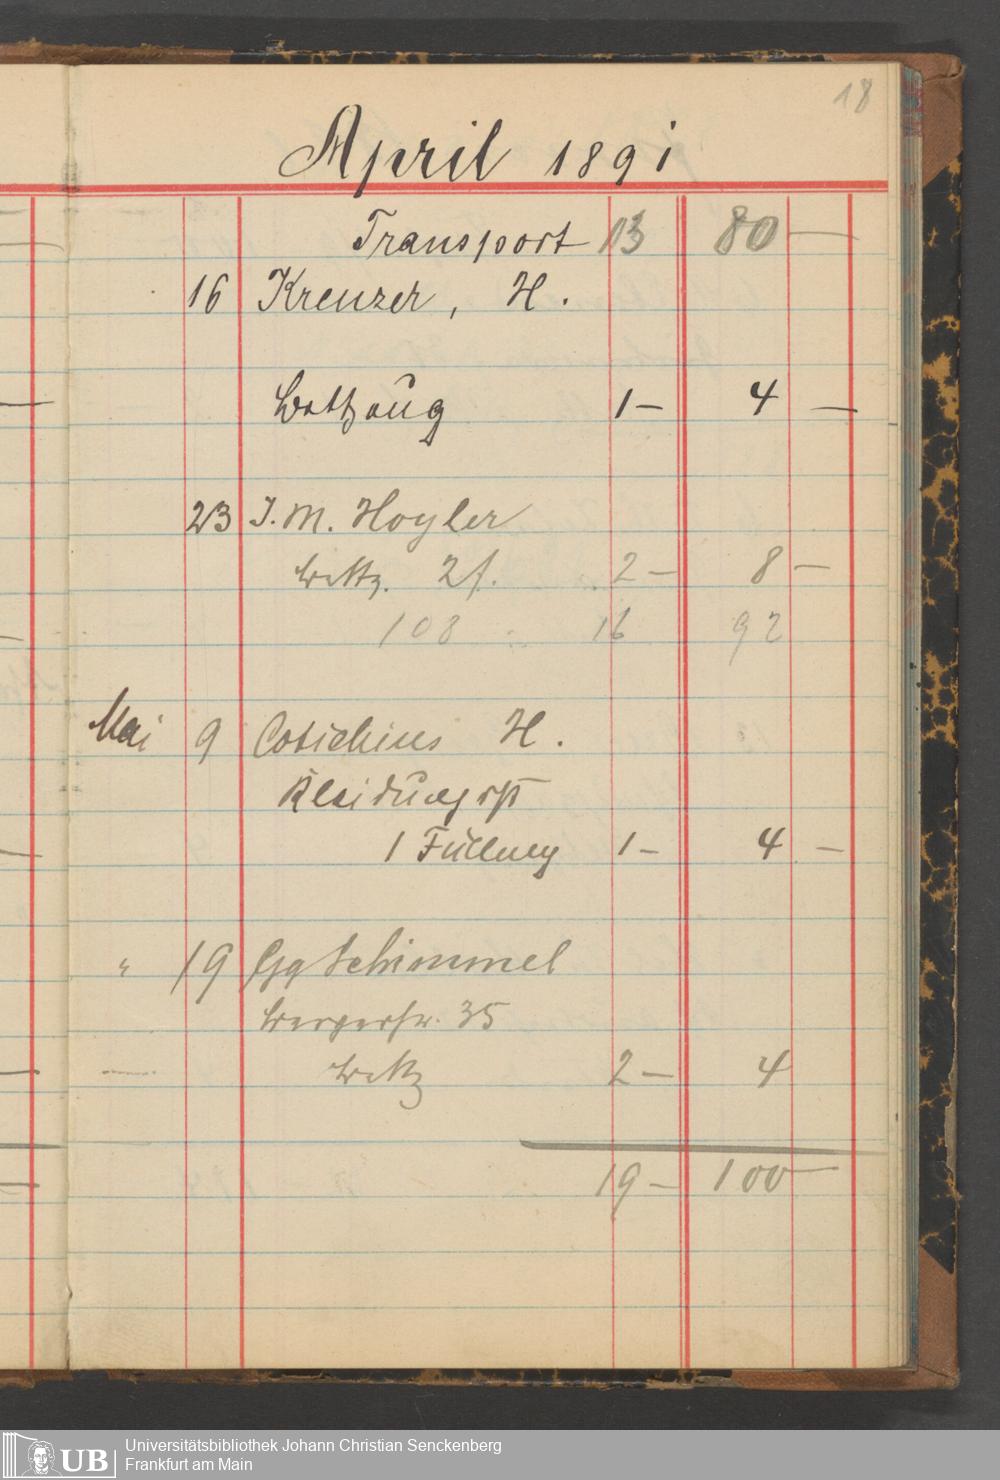 18
April 1891
Transport 13 80 —
16 Kreuzer, H.
Bettzeug 1 — 4 —
23 J. M. Hoyler
Bettz. 2 f. 2 — 8 —
108 16 92
Mai 9 Cotichius H.
Kleidungsst
1 Füllung 1 — 4 —
" 19 Gg Schimmel
35
Bettz 2 — 4
19 — 100 —
UB
Universitätsbibliothek Johann Christian Senckenberg
Frankfurt am Main